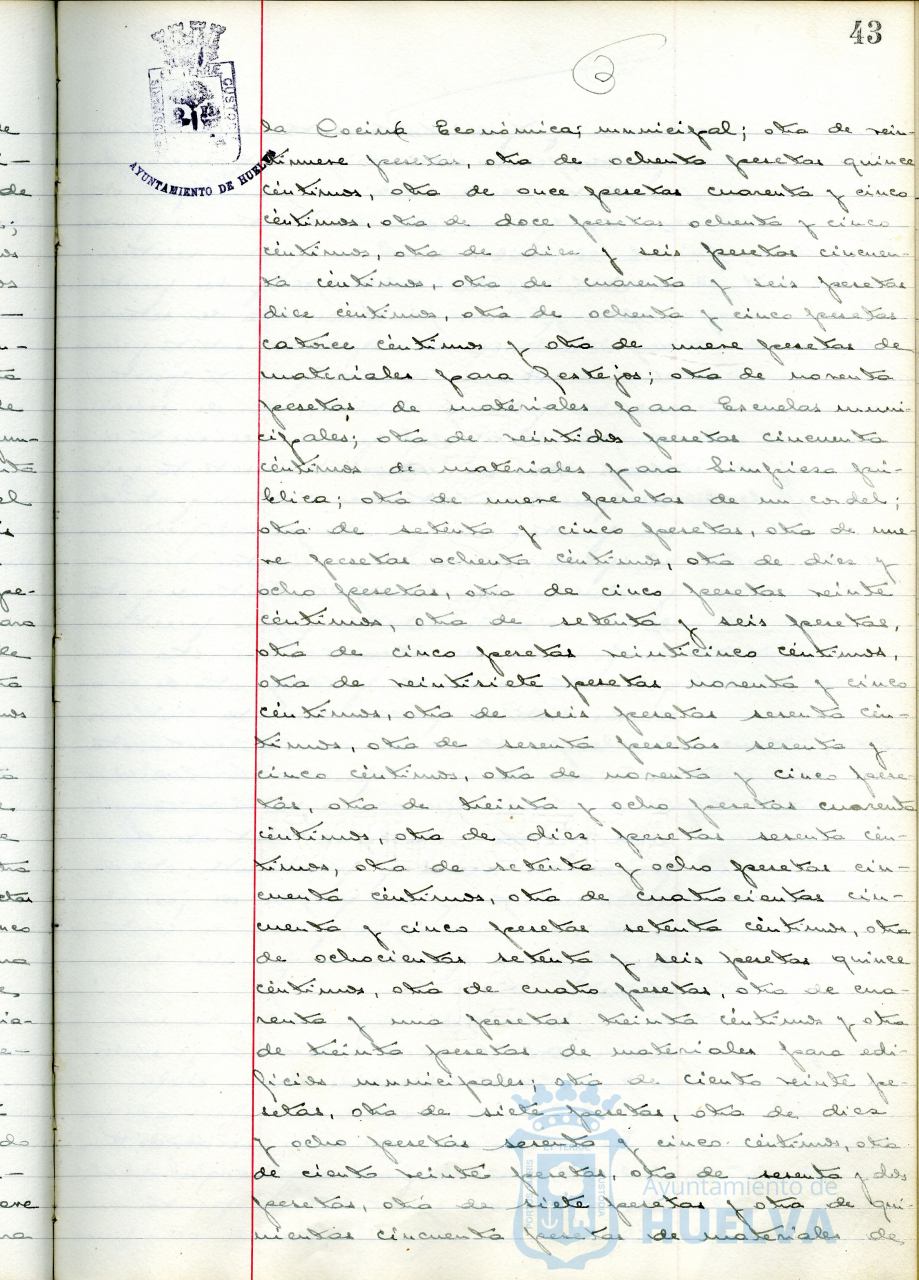 43
AYUNTAMIENTO DE HUELVA
la Cocina Económica municipal; otra de vein-
tinueve pesetas, otra de ochenta pesetas quince
céntimos, otra de once pesetas cuarenta y cinco
céntimos, otra de doce pesetas ochenta y cinco
céntimos, otra de diez y seis pesetas cincuen-
ta céntimos, otra de cuarenta y seis pesetas
dice céntimos, otra de ochenta y cinco pesetas
catorce céntimos y otra de nueve pesetas de
materiales para festejos; otra de noventa
pesetas de materiales para Escuelas muni-
cipales; otra de veintidos pesetas cincuenta
céntimos de materiales para limpieza pú-
blica; otra de nueve pesetas de un cordel;
otra de setenta y cinco pesetas, otra de nue-
ve pesetas ochenta céntimos, otra de diez y
ocho pesetas, otra de cinco pesetas veinte
céntimos, otra de setenta y seis pesetas,
otra de cinco pesetas veinticinco céntimos,
otra de veintisiete pesetas noventa y cinco
céntimos, otra de seis pesetas sesenta cén-
timos, otra de sesenta pesetas sesenta y
cinco céntimos, otra de noventa y cinco pese-
tas, otra de treinta y ocho pesetas cuarenta
céntimos, otra de diez pesetas sesenta cén-
timos, otra de setenta y ocho pesetas cin-
cuenta céntimos, otra de cuatrocientas cin-
cuenta y cinco pesetas setenta céntimos, otra
de ochocientas setenta y seis pesetas quince
céntimos, otra de cuatro pesetas, otra de cua-
renta y una pesetas treinta céntimos y otra
de treinta pesetas de materiales para edi-
ficios municipales; otra de ciento veinte pe-
setas, otra de siete pesetas, otra de diez
y ocho pesetas sesenta y cinco céntimos, otra
de ciento veinte pesetas, otra de sesenta y dos
pesetas, otra de siete pesetas y otra de qui-
nientas cincuenta pesetas de materiales de
Ayuntamiento de
HUELVA